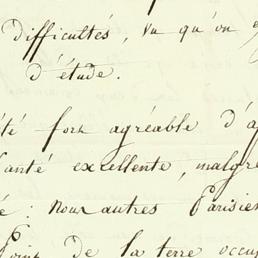 difficultés, vu qu'on
d'étude.
été fort agréable d'a
santé excellente, malgré
é : nous autres Parisien
Point de la terre occup